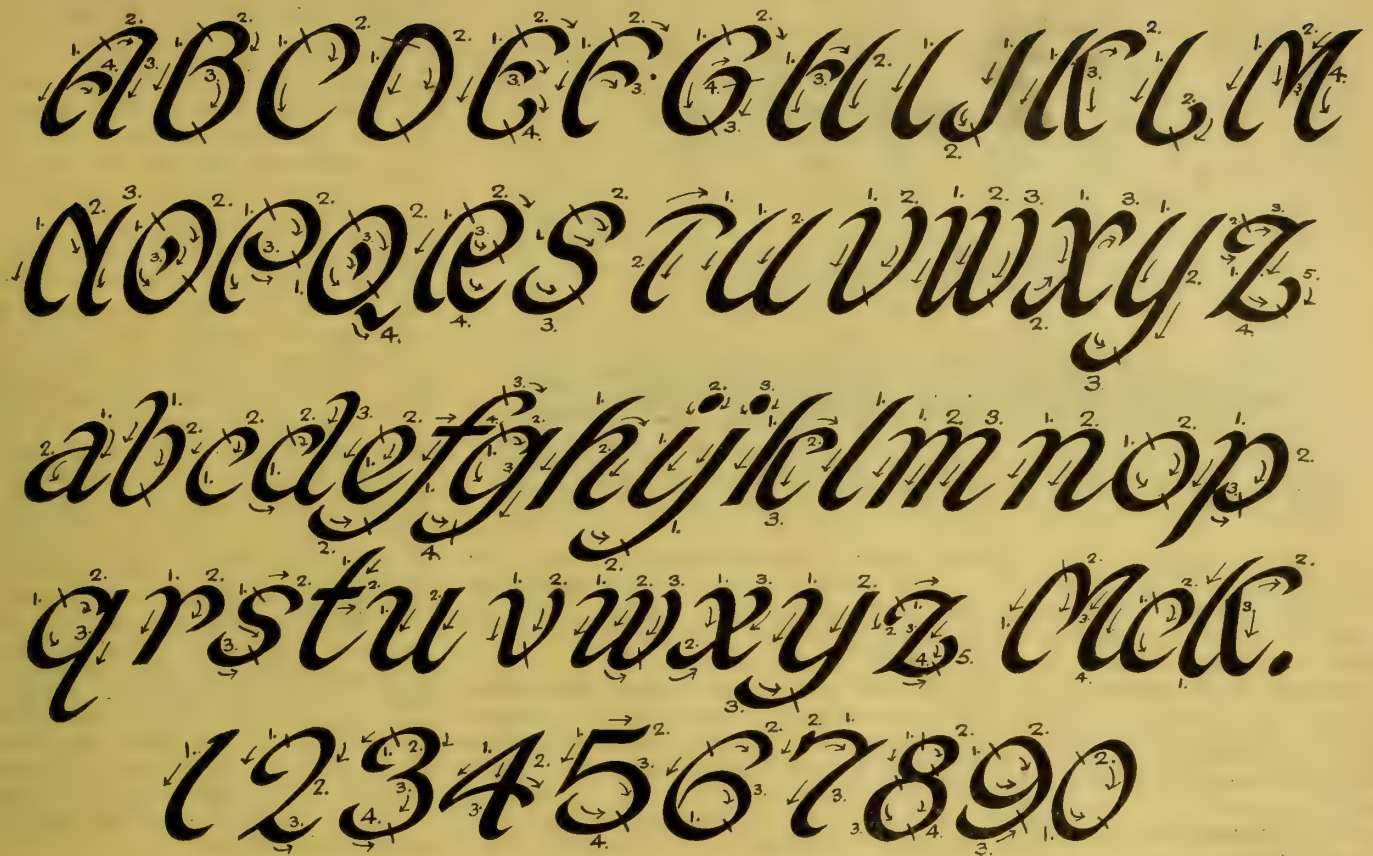 ABCDEFGHIJKLM
NOPQRSTUVWXYZ
abcdefghijklmnop
qrstuvwxyz McK.
1234567890